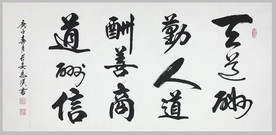 天道酬
勤人道
酬善商
道酬信
庚子 月 書